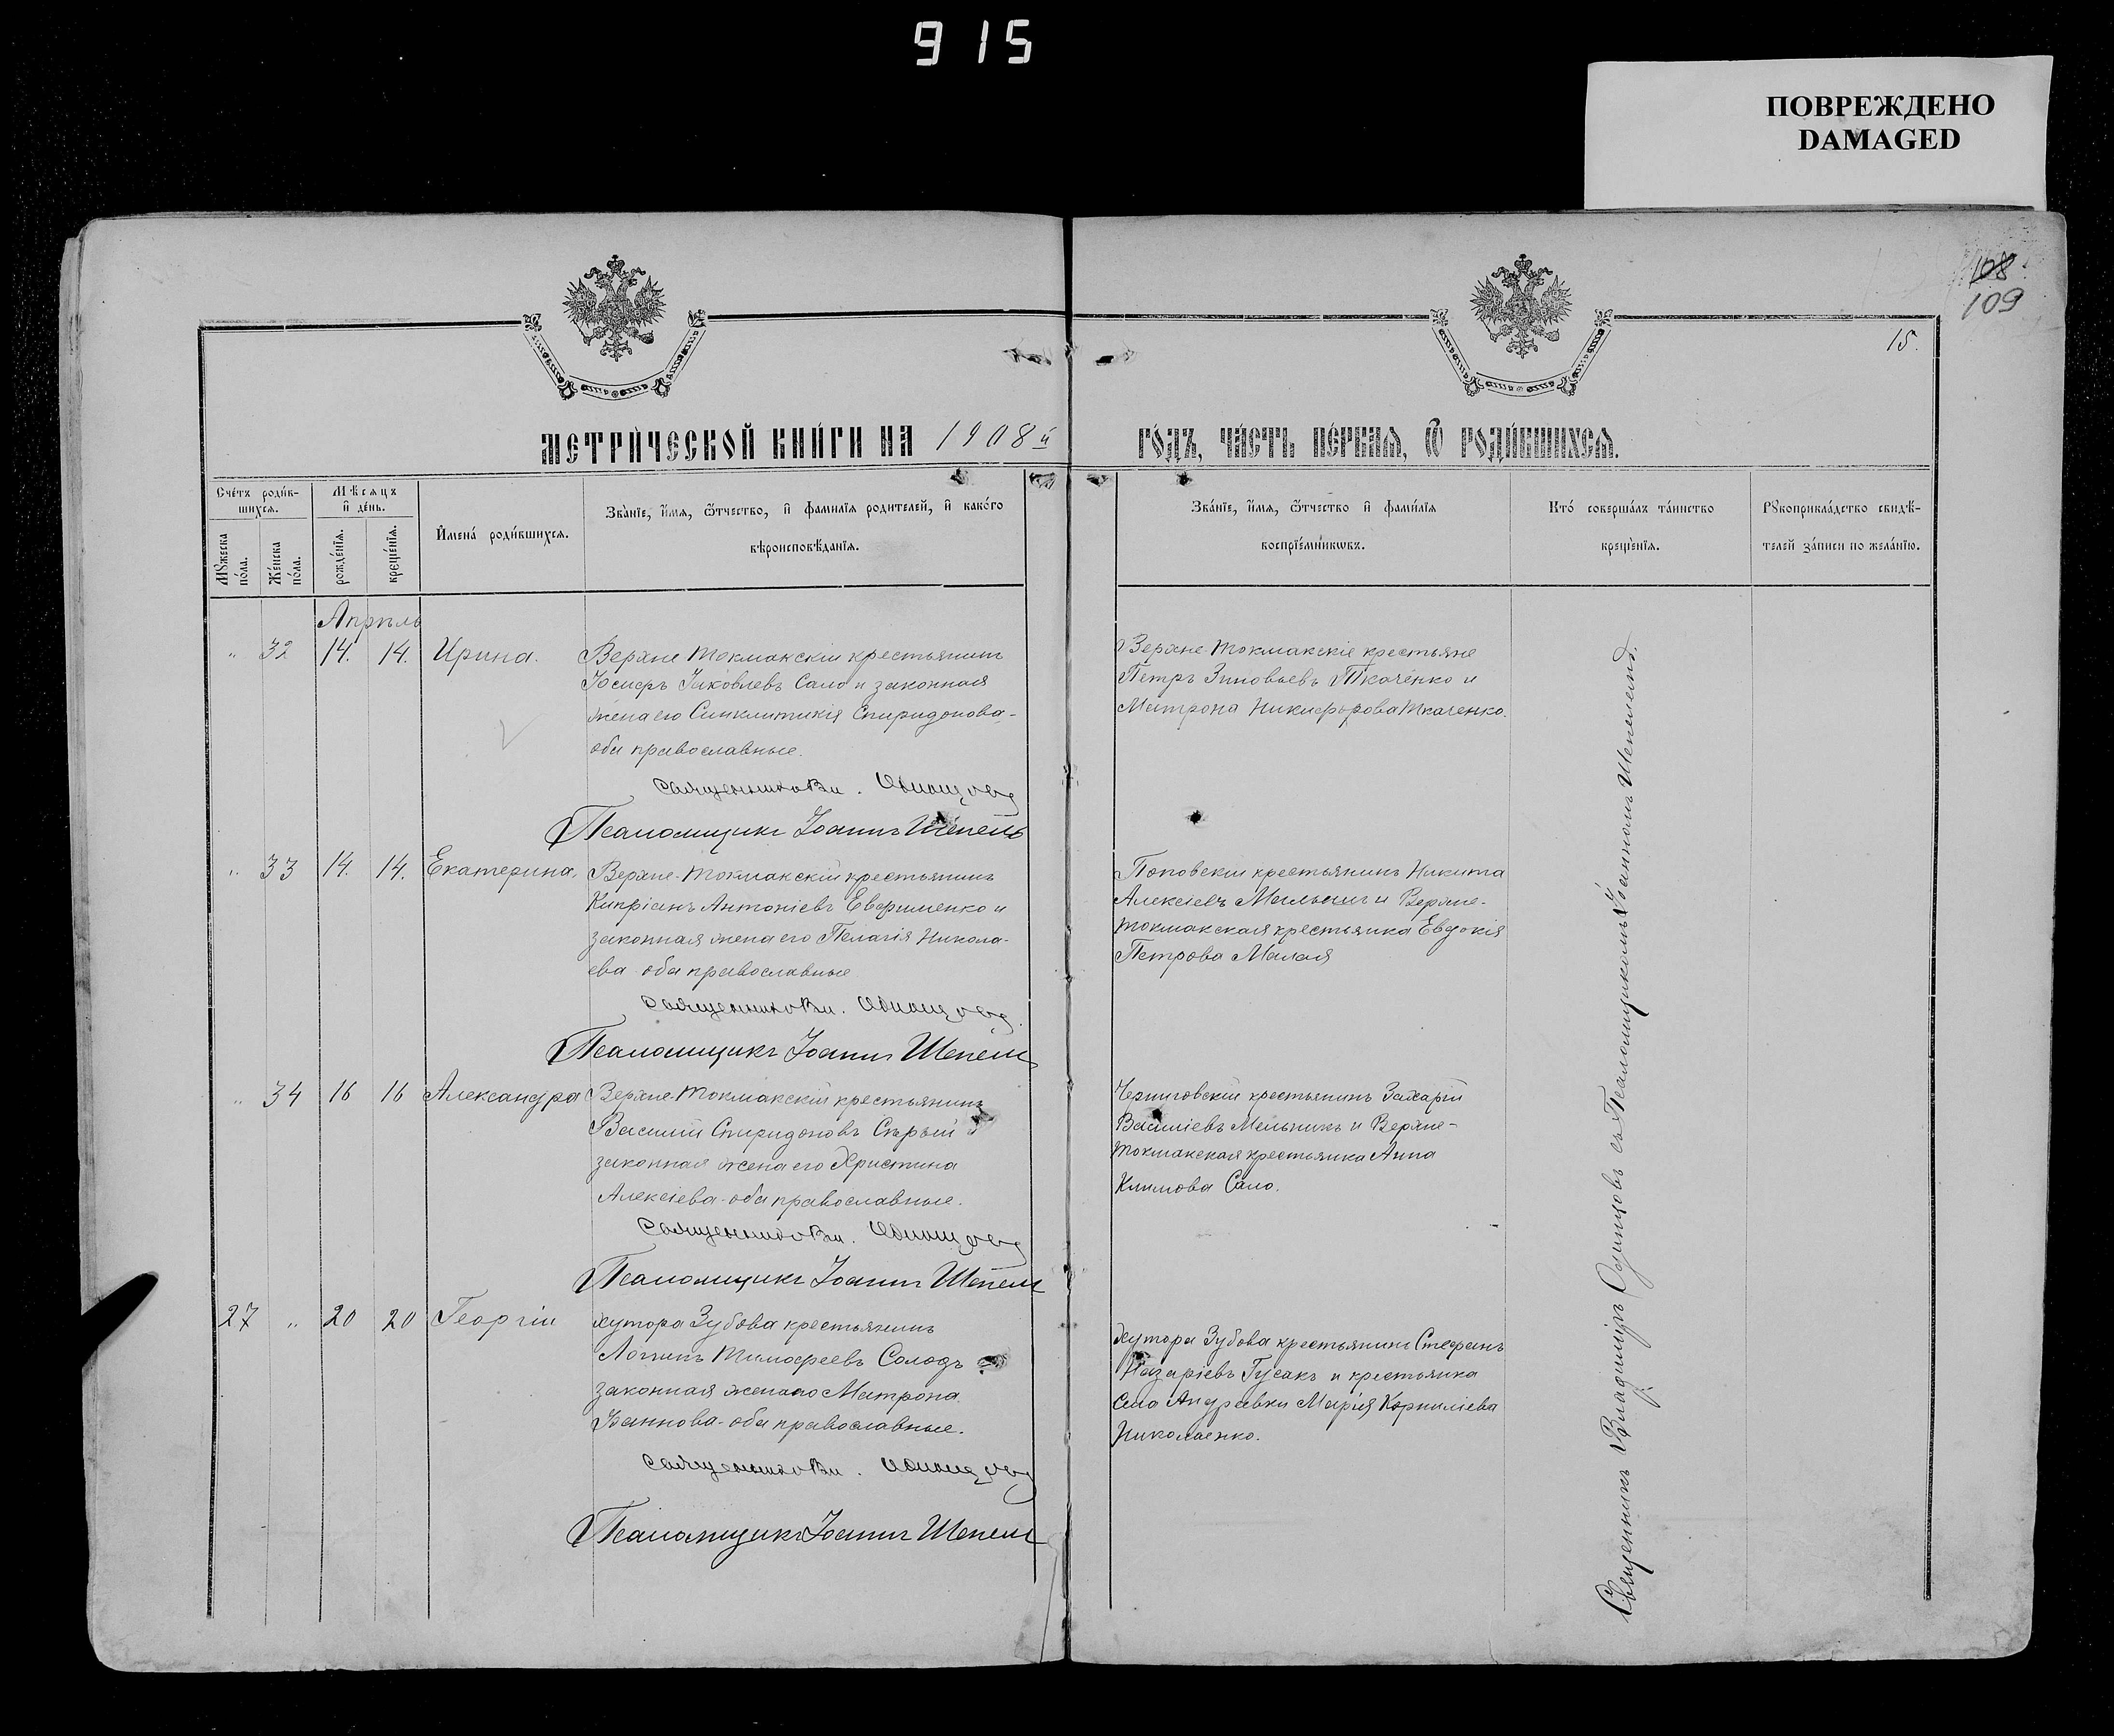 915
ПОВРЕЖДЕНО
DAMAGED
108
109
15.
МЕТРИ́ЧЕСКОЙ КНИ́ГИ НА 1908й
ГО́ДЪ, ЧА́СТЬ ПЕ́РВАѦ, Ѿ РОДИ́ВШИХСѦ.
Сче́тъ роди́в-
шихсѧ.
Мѣсѧцъ
и҆ де́нь.
Мꙋ́жеска
по́ла.
Же́нска
по́ла.
рожде́нїѧ.
креще́нїѧ.
И҆мена́ роди́вшихсѧ.
Зва́нїе, и҆́мѧ, ѻ҆́тчество, и҆ фами́лїѧ роди́телей, и҆ како́го
вѣроисповѣ́данїѧ.
Зва́нїе, и҆́мѧ, ѻ҆́тчество и҆ фами́лїѧ
воспрїе́мникѡвъ.
Кто́ соверша́лъ та́инство
креще́нїѧ.
Рꙋкоприкла́дство свидѣ́-
телей за́писи по жела́нїю.
Апрѣль
" 32 14. 14. Ирина.
Верхне Токмакскій крестьянинъ
Іосифъ Іаковлевъ Сало и законная
жена его Синклитикія Спиридонова-
оба православные.
Священникъ Вл. Одинцовъ
Псаломщикъ Іоаннъ Шепель
Верхне Токмакскіе крестьяне
Петръ Зиновьевъ Ткаченко и
Матрона Никифорова Ткаченко.
" 33 14. 14. Екатерина.
Верхне-Токмакскій крестьянинъ
Кипріанъ Антоніевъ Евфименко и
законная жена его Пелагія Никола-
ева оба православные
Священникъ Вл. Одинцовъ.
Псаломщикъ Іоаннъ Шепель
Поповскій крестьянинъ Никита
Алексіевъ и Верхне-
Токмакская крестьянка Евдокія
Петрова Малая
" 34 16 16 Александра
Верхне-Токмакскій крестьянинъ
Василій Спиридоновъ Сѣрый и
законная жена его Христина
Алексіева-оба православные.
Священникъ Вл. Одинцовъ
Псаломщикъ Іоаннъ Шепель
Черниговскій крестьянинъ Захарій
Василіевъ Мельникъ и Верхне-
Токмакская крестьянка Анна
Климова Сало.
27 " 20 20 Георгій
Хутора Зубова крестьянинъ
Логинъ Тимофеевъ Солодъ и
законная жена его Матрона
Іоаннова-оба православные.
Священникъ Вл. Одинцовъ
Псаломщикъ Іоаннъ Шепель
Хутора Зубова крестьянинъ Стефанъ
Назаріевъ Гусакъ и крестьянка
села Андреевки Марія Корниліева
Николаенко.
Священникъ Владиміръ Одинцовъ съ Псаломщикомъ Іоанномъ Шепелемъ.